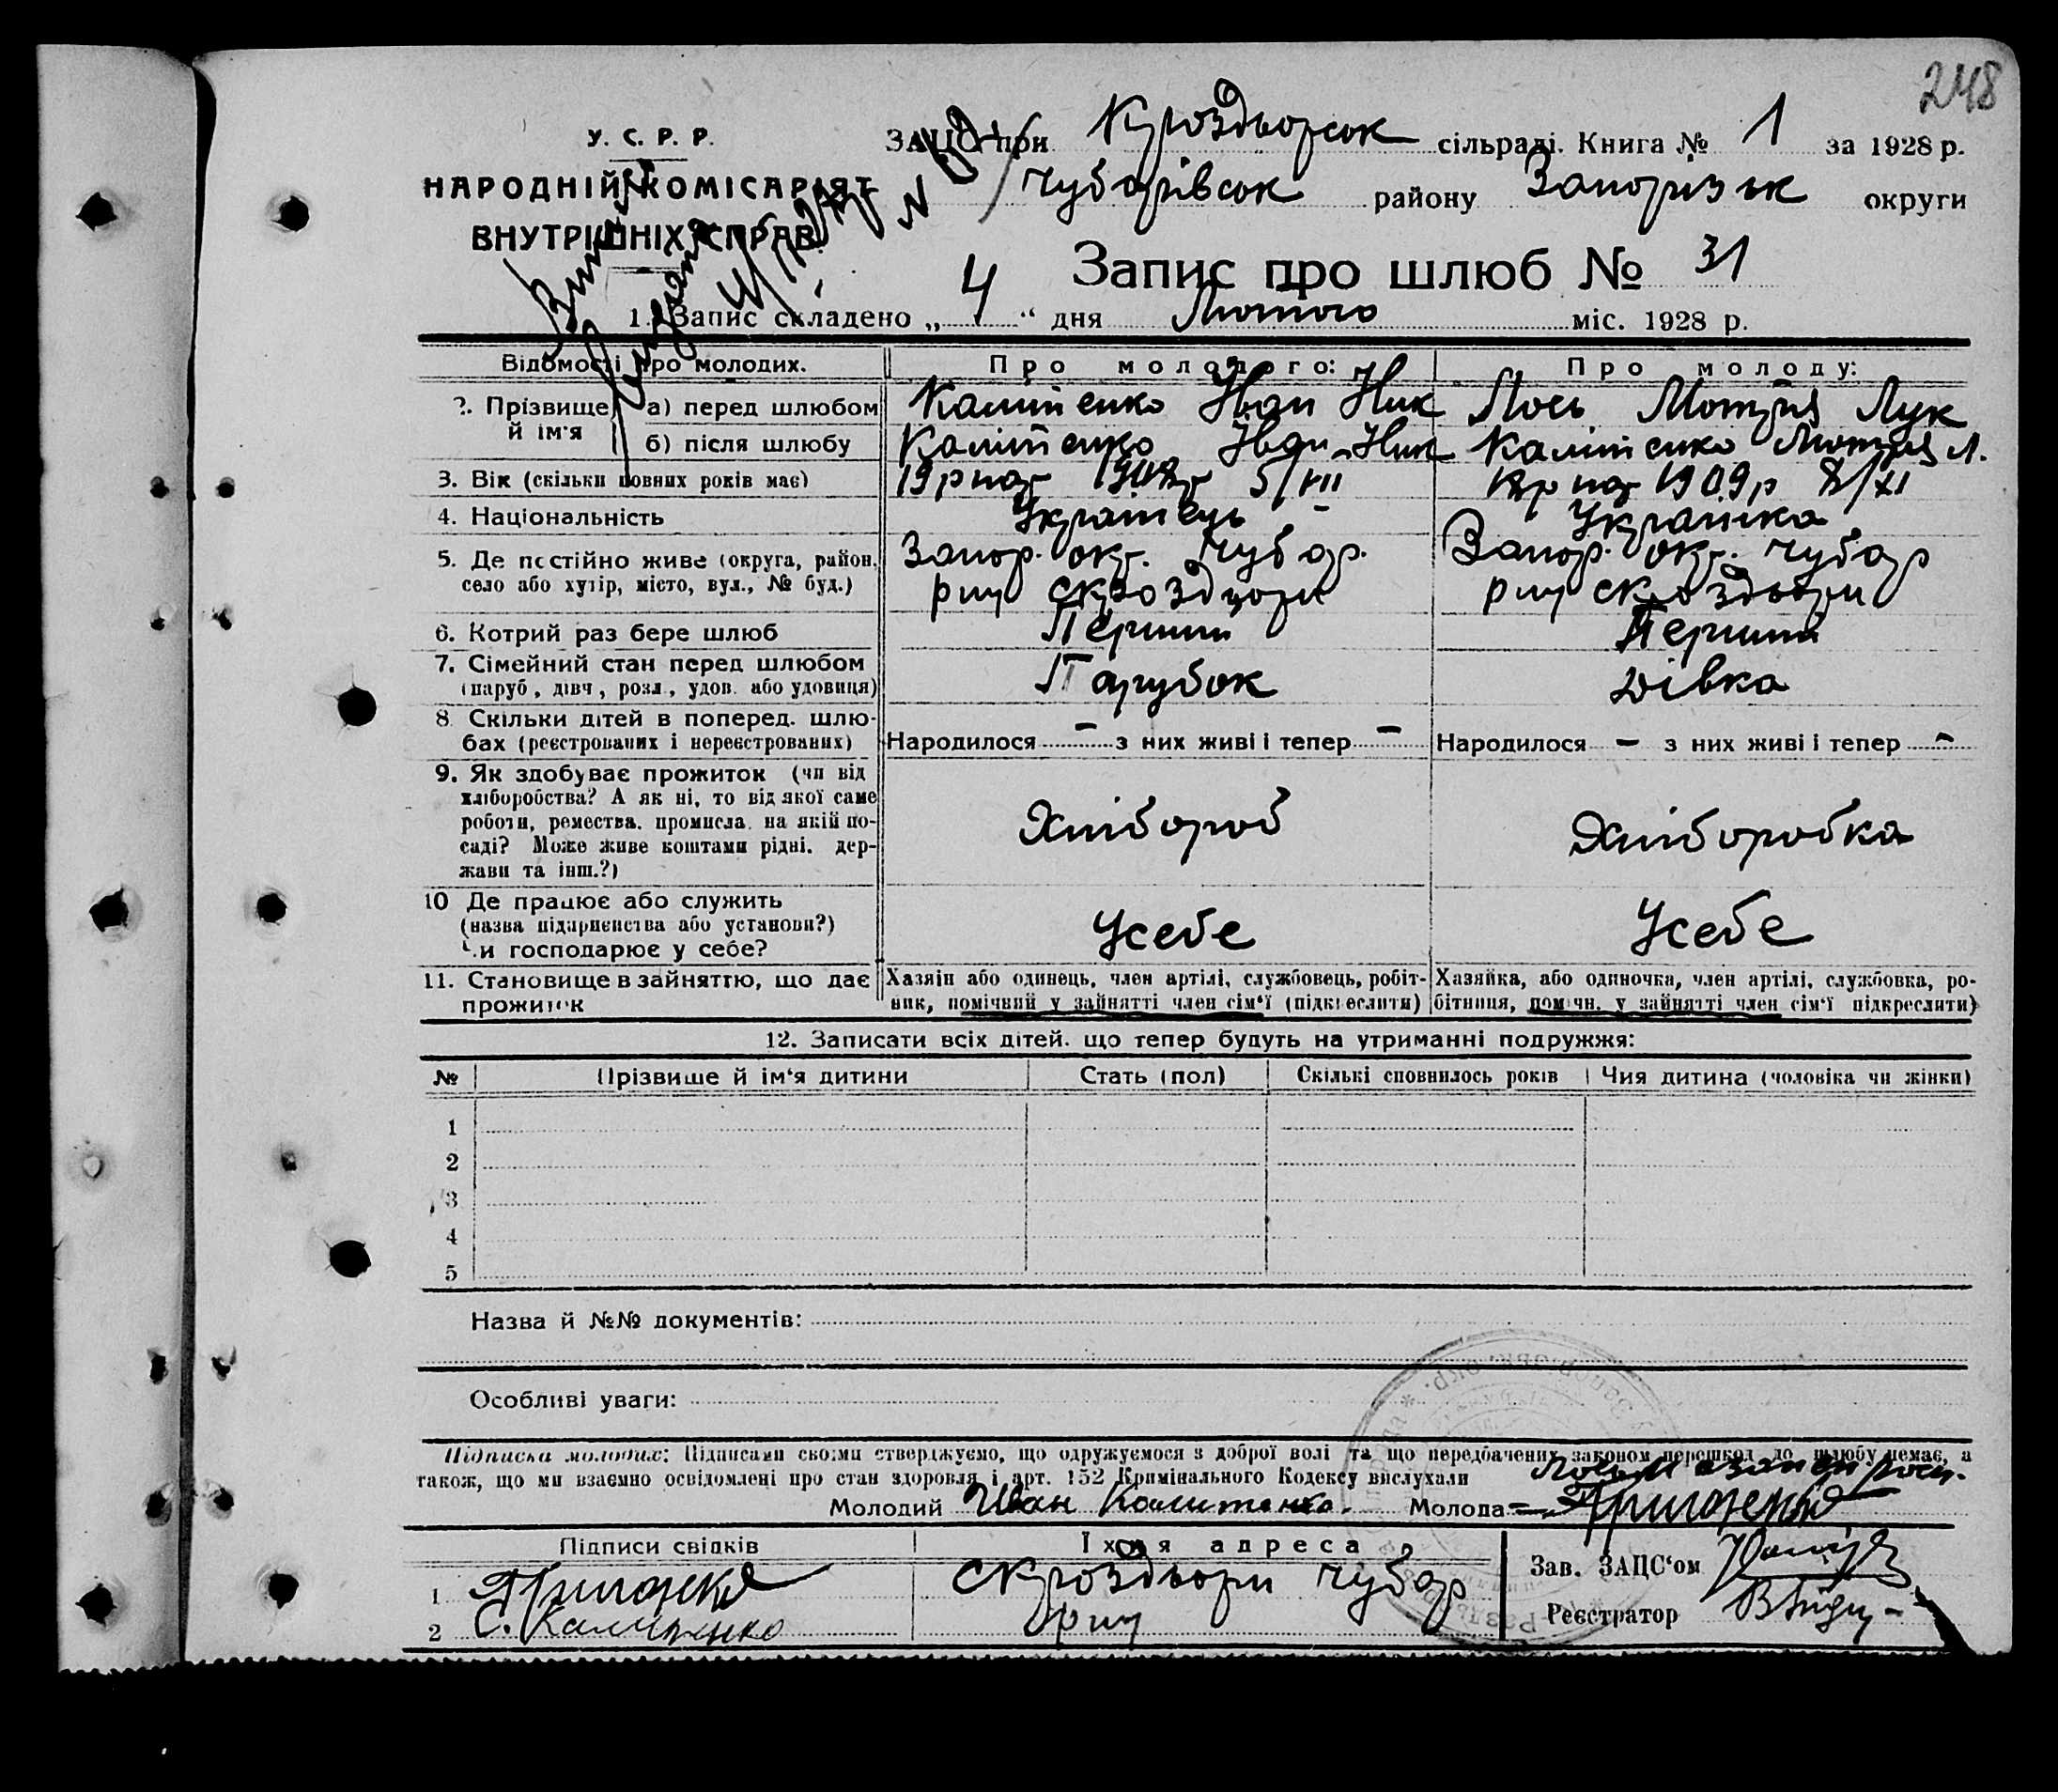 248
У. С. Р. Р.
НАРОДНІЙ КОМІСАРІЯТ
ВНУТРІШНІХ СПРАВ
ЗАЦС при Кроздворськ сільраді. Книга № 1 за 1928 р.
Чубарівськ району Запорізьк округи
Запис про шлюб № 31
1. Запис складено „ 4 “ дня Лютого міс. 1928 р.
Відомості про молодих. Про молодого: Про молоду:
2. Прізвище й ім'я а) перед шлюбом Калітенко Іван Ник Лось Мотря Лук
б) після шлюбу Калітенко Іван Ник Калітенко Мотря Л.
3. Вік (скільки повних років має) 19 р 5/VII 1909 р 8/XI
4. Національність Українець Українка
5. Де постійно живе (округа, район, село або хутір, місто, вул., № буд.) Запор. окр. Чубар. рну с Кроздвори Запор. окр. Чубар рну с Кроздвори
6. Котрий раз бере шлюб Перший Перший
7. Сімейний стан перед шлюбом (паруб, дівч, розл, удов. або удовиця) Парубок Дівка
8 Скільки дітей в поперед. шлюбах (реєстрованих і нереєстрованих) Народилося – з них живі і тепер – Народилося – з них живі і тепер –
9. Як здобуває прожиток (чи від хліборобства? А як ні, то від якої саме роботи, ремества, промисла, на якій посаді? Може живе коштами рідні, держави та інш.?) Хлібороб Хліборобка
10 Де працює або служить (назва підприємства або установи?) Чи господарює у себе? Усебе Усебе
11. Становище в зайняттю, що дає прожиток Хазяїн або одинець, член артілі, службовець, робітник, помічний у зайнятті член сім'ї (підкреслити) Хазяйка, або одиночка, член артілі, службовка, робітниця, помічн. у зайнятті член сім'ї підкреслити)
12. Записати всіх дітей, що тепер будуть на утриманні подружжя:
№ Прізвище й ім'я дитини Стать (пол) Скількі сповнилось років Чия дитина (чоловіка чи жінки)
1
2
3
4
5
Назва й №№ документів:
Особливі уваги:
Підписка молодих: Підписами своїми стверджуємо, що одружуємося з доброї волі та що передбачених законом перешкод до шлюбу немає, а
також, що ми взаємно освідомлені про стан здоровля і арт. 152 Кримінального Кодексу вислухали
Молодий Иван Калитенко. Молода
Підписи свідків Їхня адреса Зав. ЗАЦС'ом
1 с Кроздвори Чубар
2 С. Калитенко рну Реєстратор